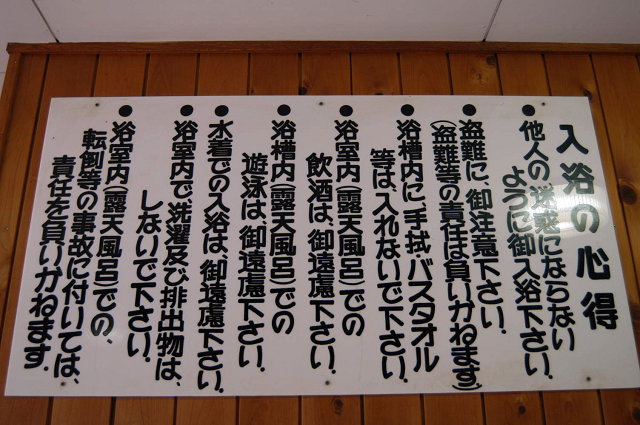 入浴の心得
●他人の迷惑にならない
ように御入浴下さい．
●盗難に、御注意下さい．
(盗難等の責任は負いかねます)
●浴槽内に、手拭・バスタオル
等は、入れないで下さい．
●浴室内(露天風呂)での
飲酒は、御遠慮下さい．
●浴槽内(露天風呂)での
遊泳は、御遠慮下さい．
●水着での入浴は、御遠慮下さい．
●浴室内で、洗濯及び排出物は、
しないで下さい．
●浴室内(露天風呂)での、
転倒等の事故に付いては、
責任を負いかねます．